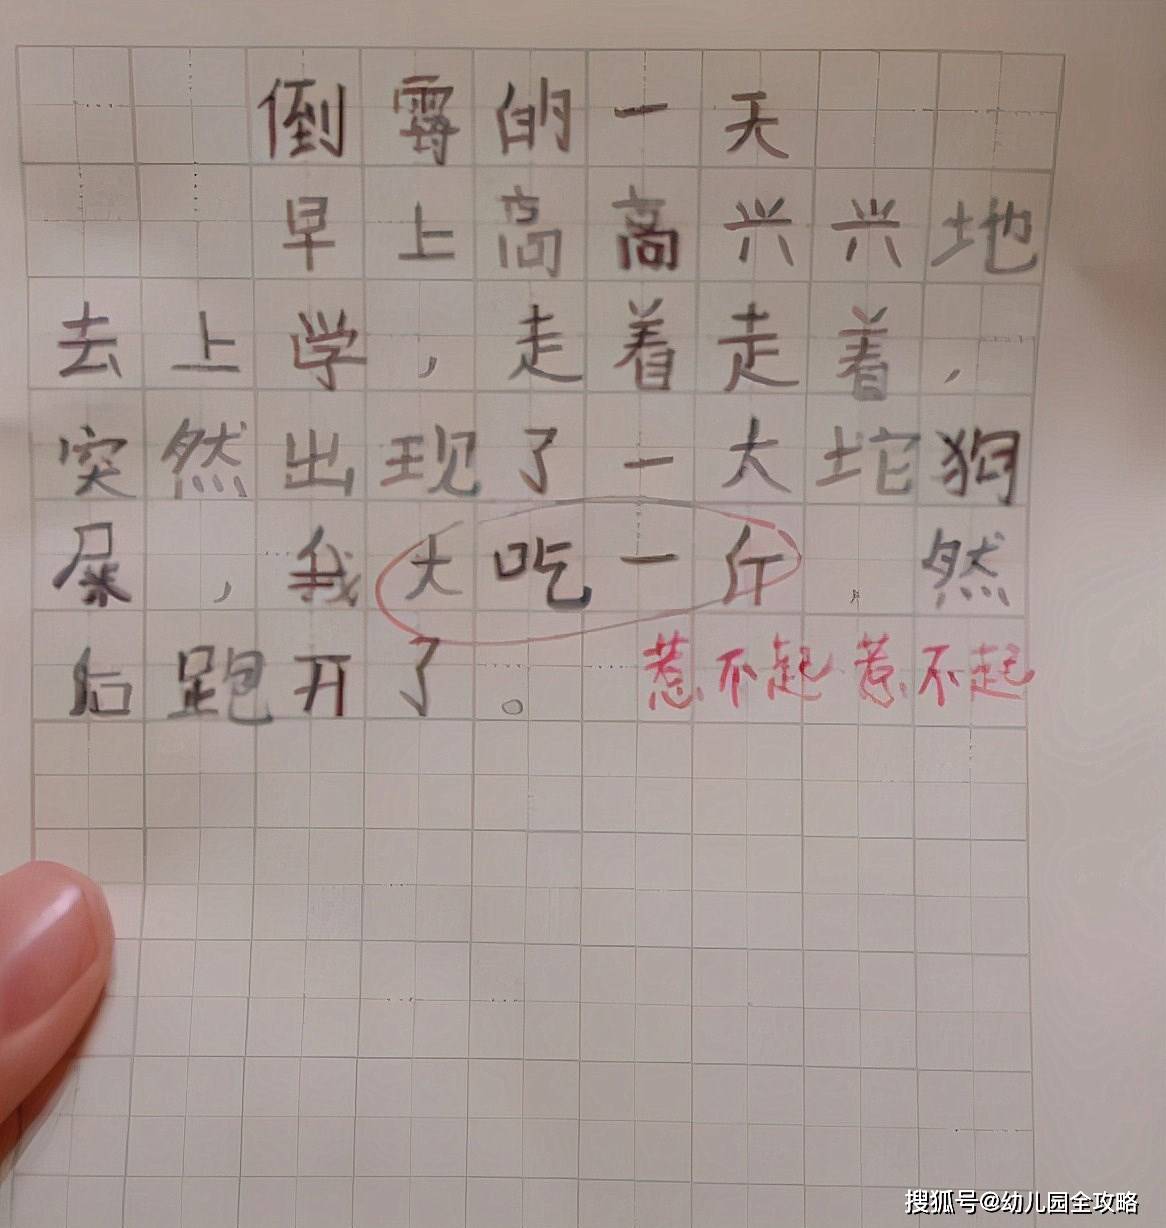 倒霉的一天
早上高高兴兴地
去上学，走着走着，
突然出现了一大坨狗
屎，我大吃一斤，然
后跑开了。
惹不起惹不起
搜狐号@幼儿园全攻略